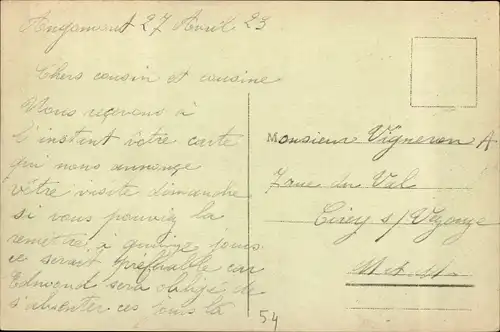 Angomont 27 Avril 23
Chers cousin et cousine
Nous recevons à
l'instant vôtre carte
qui nous annonçe
vôtre visite dimanche
si vous pouviez la
remettre à quinze jours
ce serait préférable car
Edmond sera obligé de
s'absenter ces jours là
Monsieur Vigneron A
Rue du Val
Cirey s/Vezouze
M et M
54